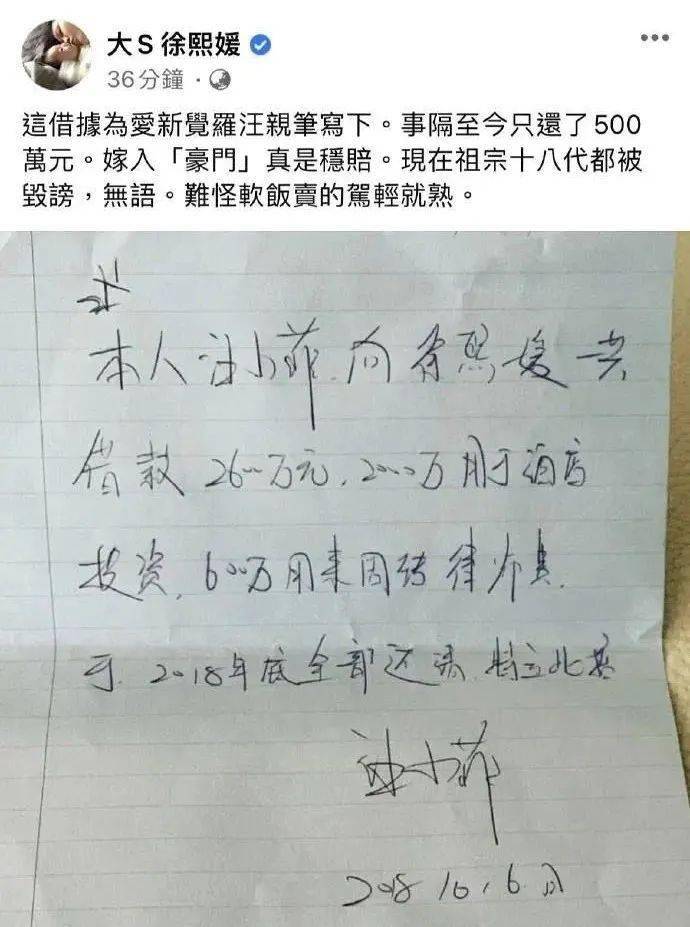 大S徐熙媛
36分鐘
這借據為愛新覺羅汪親筆寫下。事隔至今只還了500
萬元。嫁入「豪門」真是穩賠。現在祖宗十八代都被
毀謗，無語。難怪軟飯賣的駕輕就熟。
本人汪小菲.向徐熙媛共
借款2600万元.2000万用于酒店
投资.600万用来周转律师
于.2018年底全部还清.特立此据
汪小菲
2018 10.6.日